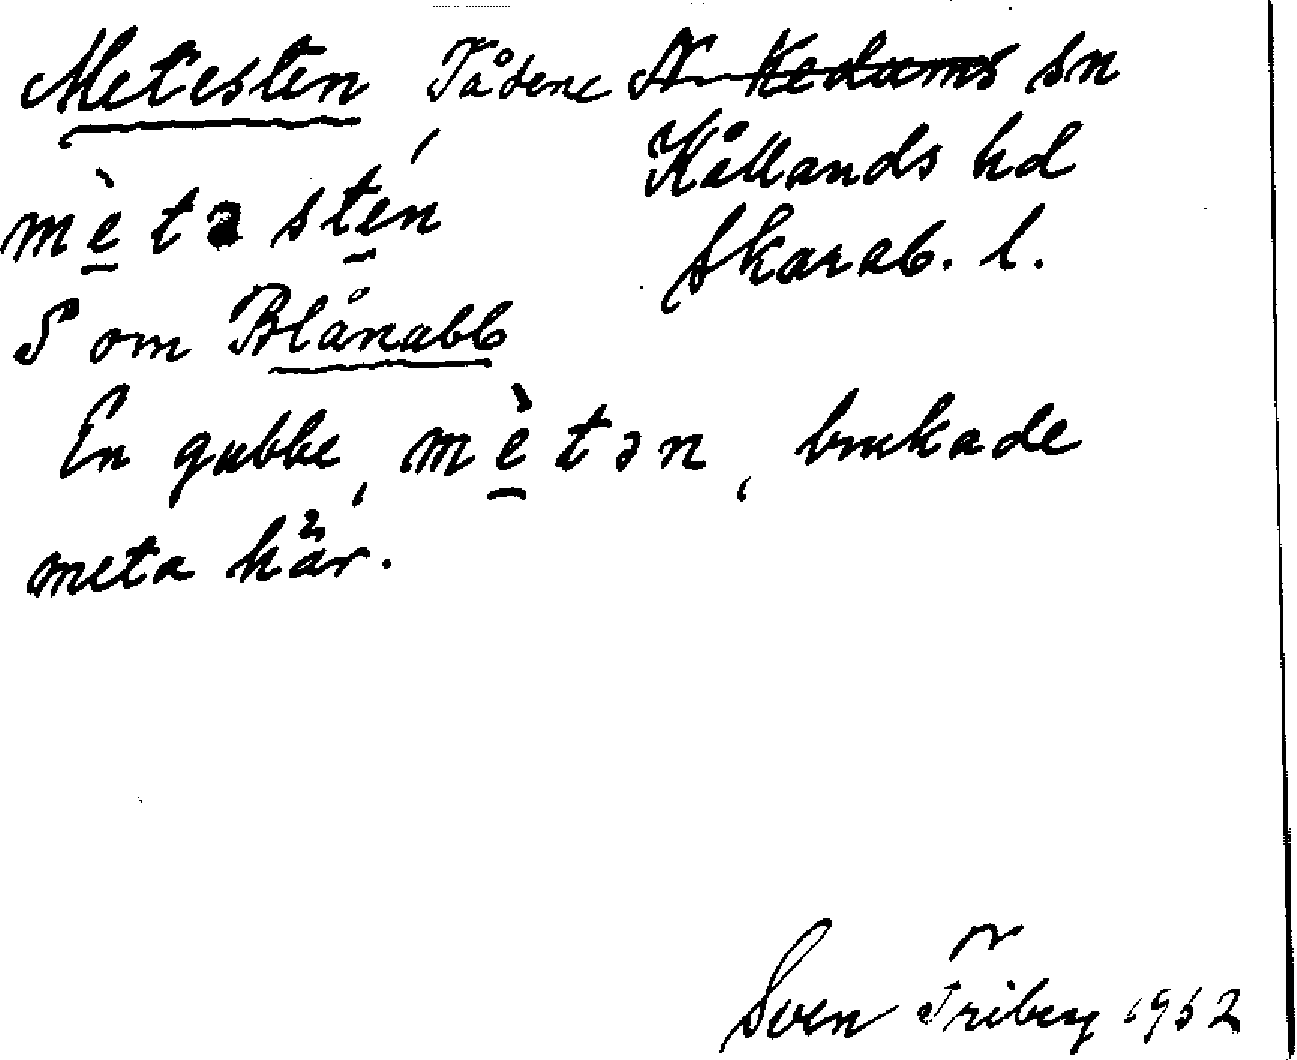 Metesten, Tådene N. Kedums sn
Kållands hd
mètəstén
Skarab. l.
S om Blånabb
En gubbe, mètən, brukade
meta här.
Sven Friberg 1952